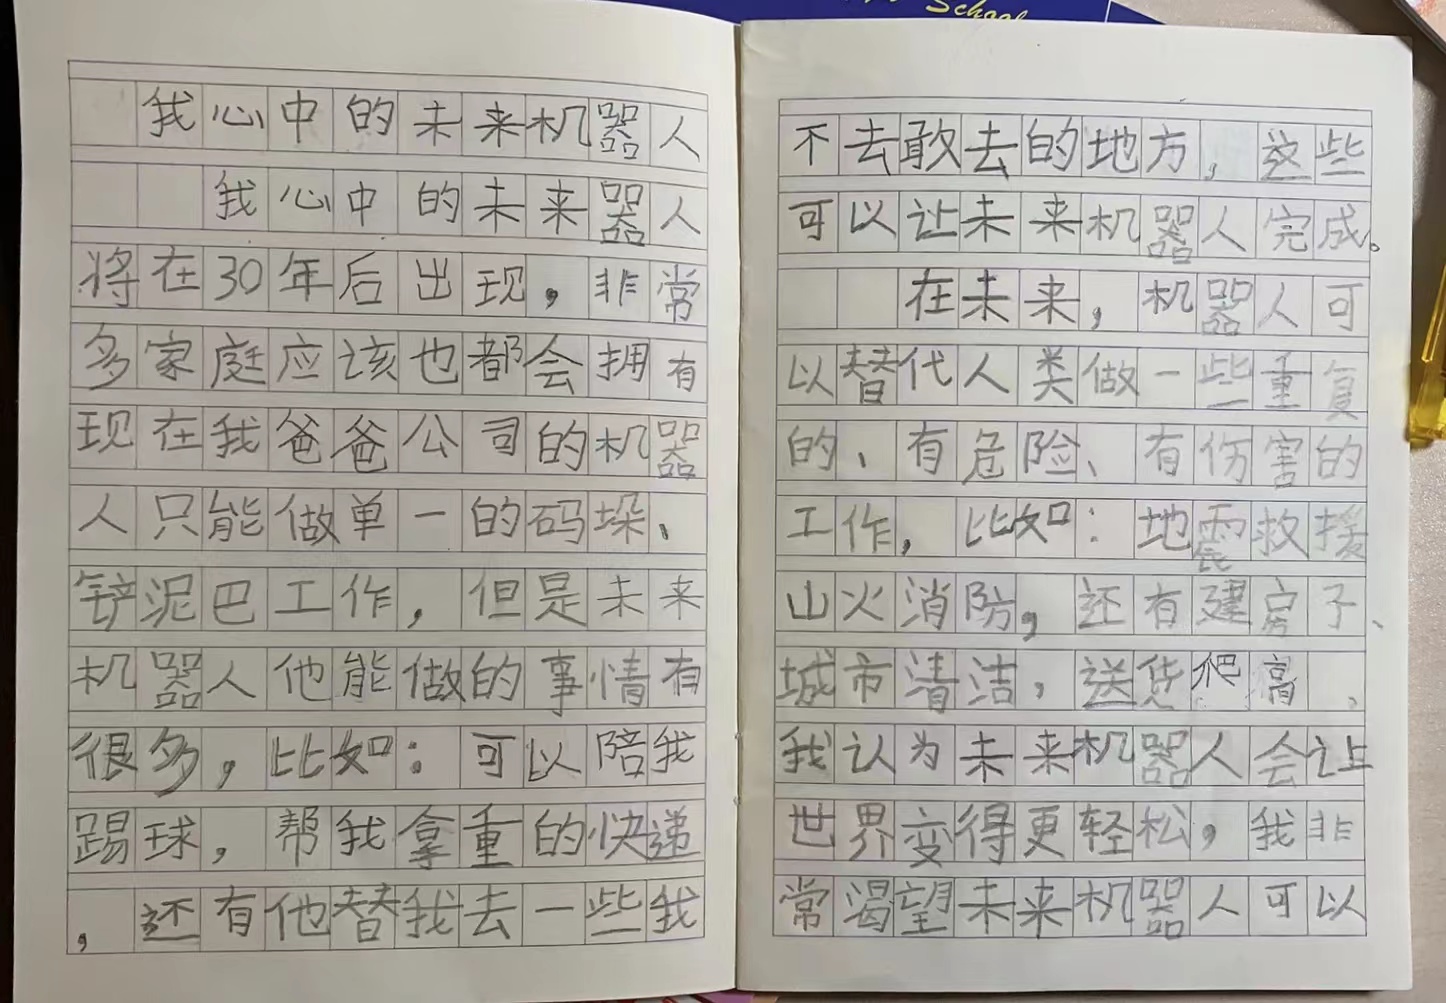 School
我心中的未来机器人
我心中的未来器人
将在30年后出现，非常
多家庭应该也都会拥有
现在我爸爸公司的机器
人只能做单一的码垛、
铲泥巴工作，但是未来
机器人他能做的事情有
很多，比如：可以陪我
踢球，帮我拿重的快递
，还有他替我去一些我
不去敢去的地方，这些
可以让未来机器人完成。
在未来，机器人可
以替代人类做一些重复
的、有危险、有伤害的
工作，比如：地震救援
山火消防，还有建房子、
城市清洁，送货爬高，
我认为未来机器人会让
世界变得更轻松，我非
常渴望未来机器人可以